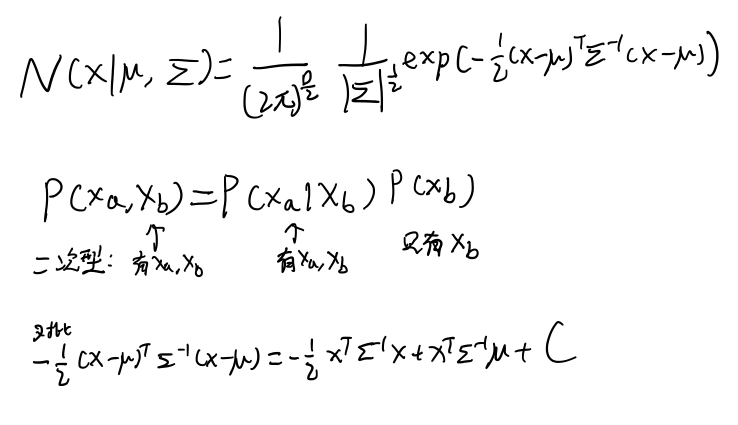 N(x|μ, Σ) = 1/(2π)^(D/2) 1/|Σ|^(1/2) exp(-1/2(x-μ)^T Σ^-1 (x-μ))
P(xa, xb) = P(xa|xb) P(xb)
↑ ↑
二次型: 有xa, xb 有xa, xb 只有xb
对比
-1/2 (x-μ)^T Σ^-1 (x-μ) = -1/2 x^T Σ^-1 x + x^T Σ^-1 μ + C